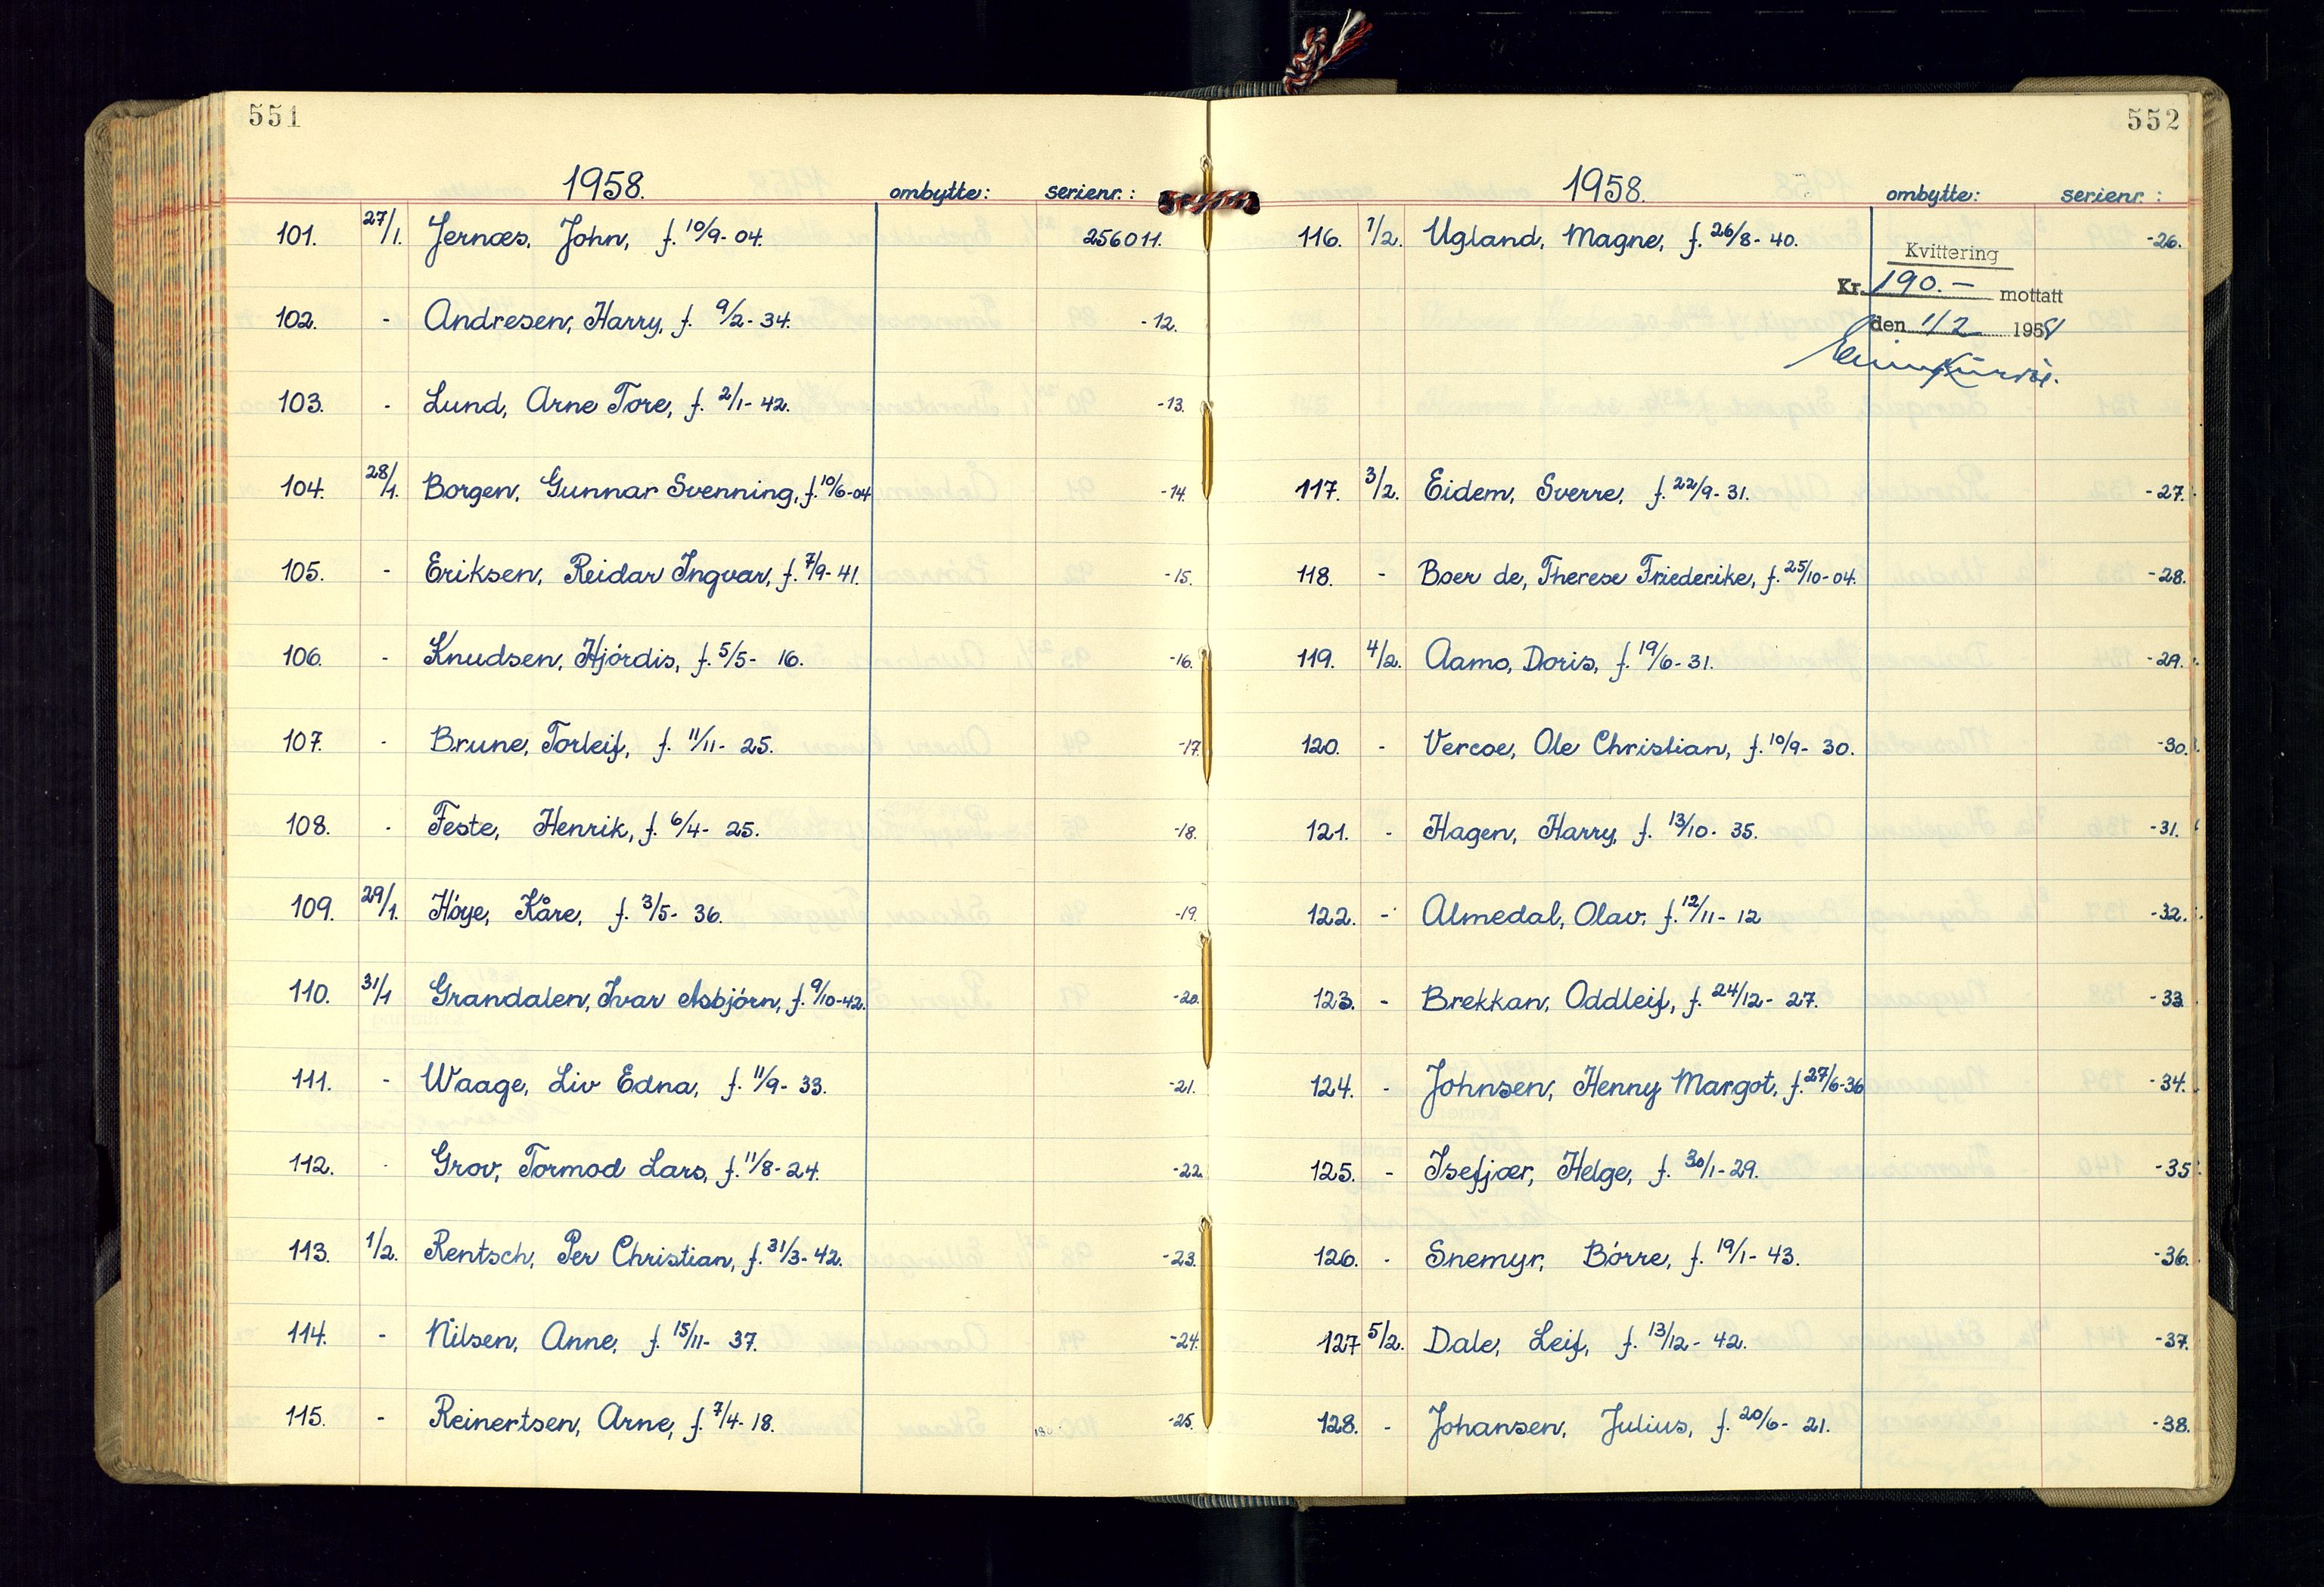 551
1958. ombytte: serienr.:
101. 27/1. Jernæs, John, f. 10/9-04. 256011.
102. - Andresen, Harry, f. 9/2-34. -12.
103. - Lund, Arne Tore, f. 2/1-42. -13.
104. 28/1. Borgen, Gunnar Svenning, f. 10/6-04 -14.
105. - Eriksen, Reidar Ingvar, f. 7/9-41. -15.
106. - Knudsen, Hjördis, f. 5/5- 16. -16.
107. - Brune, Torleif, f. 11/11- 25. -17.
108. - Feste, Henrik, f. 6/4- 25. -18.
109. 29/1. Höye, Kåre, f. 3/5- 36. -19.
110. 31/1 Grandalen, Ivar Asbjörn, f. 9/10-42. -20.
111. - Waage, Liv Edna, f. 11/9- 33. -21.
112. - Grov, Tormod Lars, f. 11/8-24. -22.
113. 1/2. Rentsch, Per Christian, f. 31/3-42. -23.
114. - Nilsen, Anne, f. 15/11- 37. -24.
115. - Reinertsen, Arne, f. 7/4-18. -25.
552
1958. ombytte: serienr.:
116. 1/2. Ugland, Magne, f. 26/8-40. -26.
Kvittering
Kr. 190.- mottatt
den 1/2 1958
117. 3/2. Eidem, Sverre, f. 22/9-31. -27.
118. - Boer de, Therese Friederike, f. 25/10-04. -28.
119. 4/2. Aamo, Doris, f. 19/6-31. -29.
120. - Vercoe, Ole Christian, f. 10/9- 30. -30.
121. - Hagen, Harry, f. 13/10- 35. -31.
122. - Almedal, Olav, f. 12/11-12 -32.
123. - Brekkan, Oddleif, f. 24/12- 27. -33.
124. - Johnsen, Henny Margot, f. 27/6-36 -34.
125. - Isefjær, Helge, f. 30/1-29. -35
126. - Snemyr, Börre, f. 19/1-43. -36.
127 5/2. Dale, Leif, f. 13/12-42. -37.
128. - Johansen, Julius, f. 20/6- 21. -38.